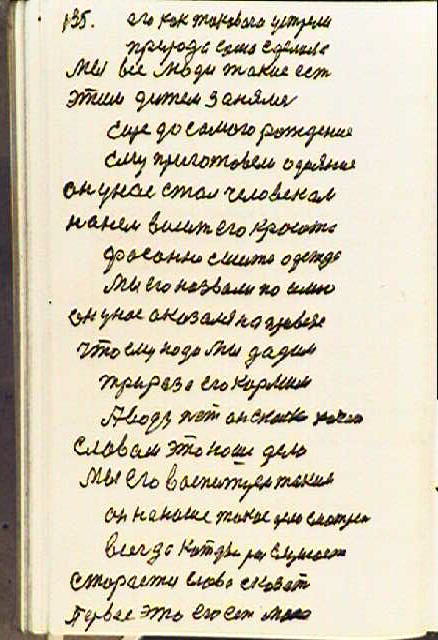 135. его как такового устроли
природа сама сделала
Мы все люди такие ест
этим дитем заняли
еще до самого рождение
ему приготовели одеяние
он у нас стал человекам
на нем висит его красота
фасонно сшита одежда
Мы его назвали по имю
он у нас оказался на
что ему надо мы дадим
три раза его кормим
А воды пет он сколько хочет
словам это наше дело
Мы его воспитуем таким
он на наше такое дело смотрел
всегда
старается слово сказат
Первое это его ест мама